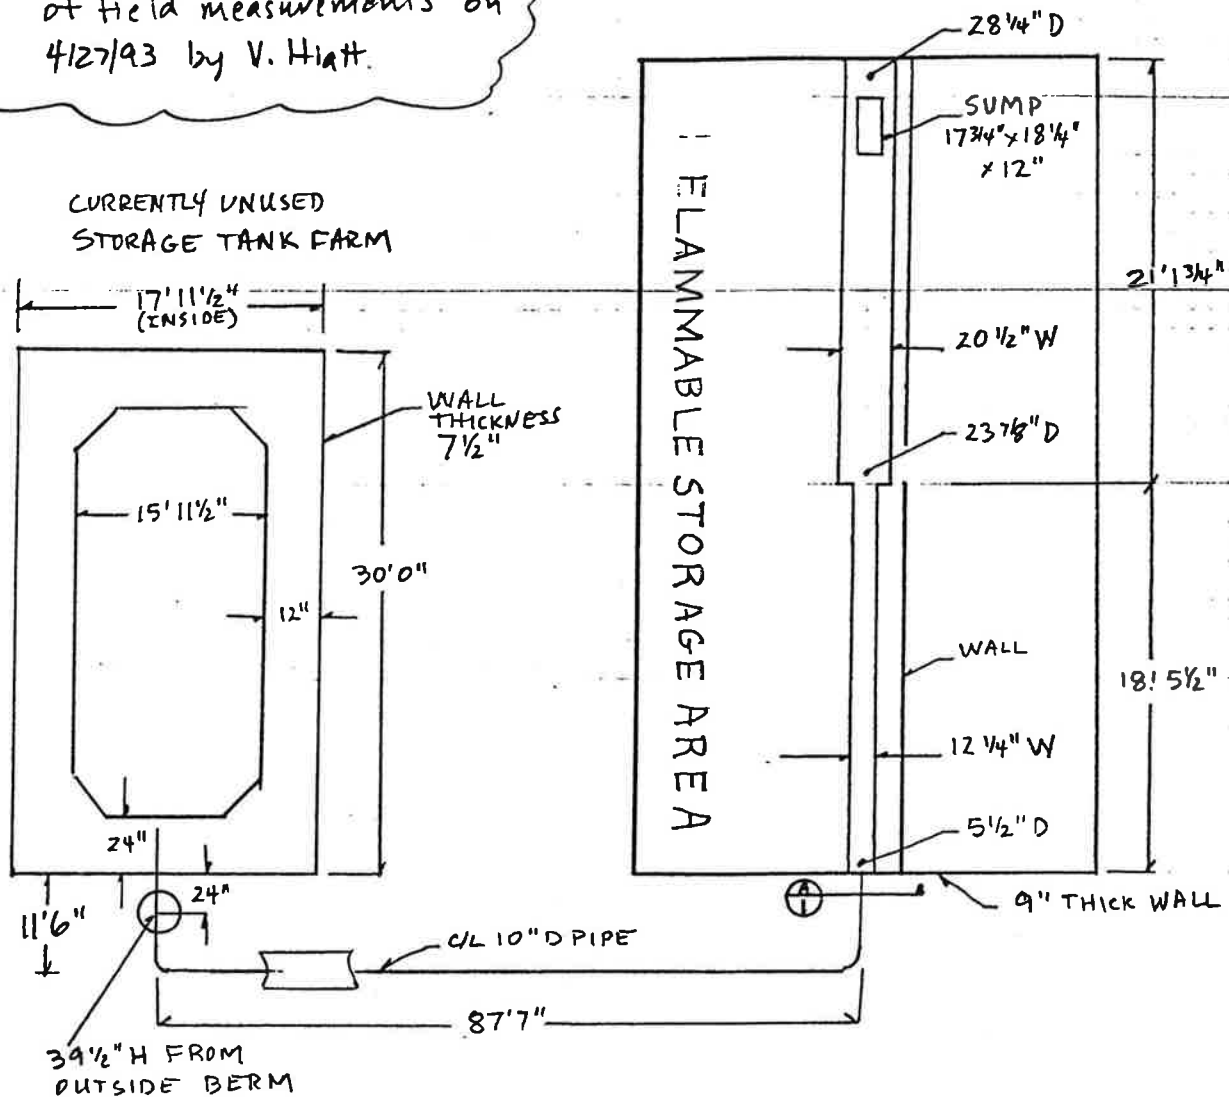 of field measurements on
4/27/93 by V. Hiatt.
CURRENTLY UNUSED
STORAGE TANK FARM
17'11½"
(INSIDE)
WALL
THICKNESS
7½"
15'11½"
30'0"
12"
24"
24"
11'6"
39½"H FROM
OUTSIDE BERM
C/L 10"D PIPE
87'7"
FLAMMABLE STORAGE AREA
28¼"D
SUMP
17¾"x18¼"
x12"
21'1¾"
20½"W
23⅞"D
WALL
18'5½"
12¼"W
5½"D
A
1
9" THICK WALL